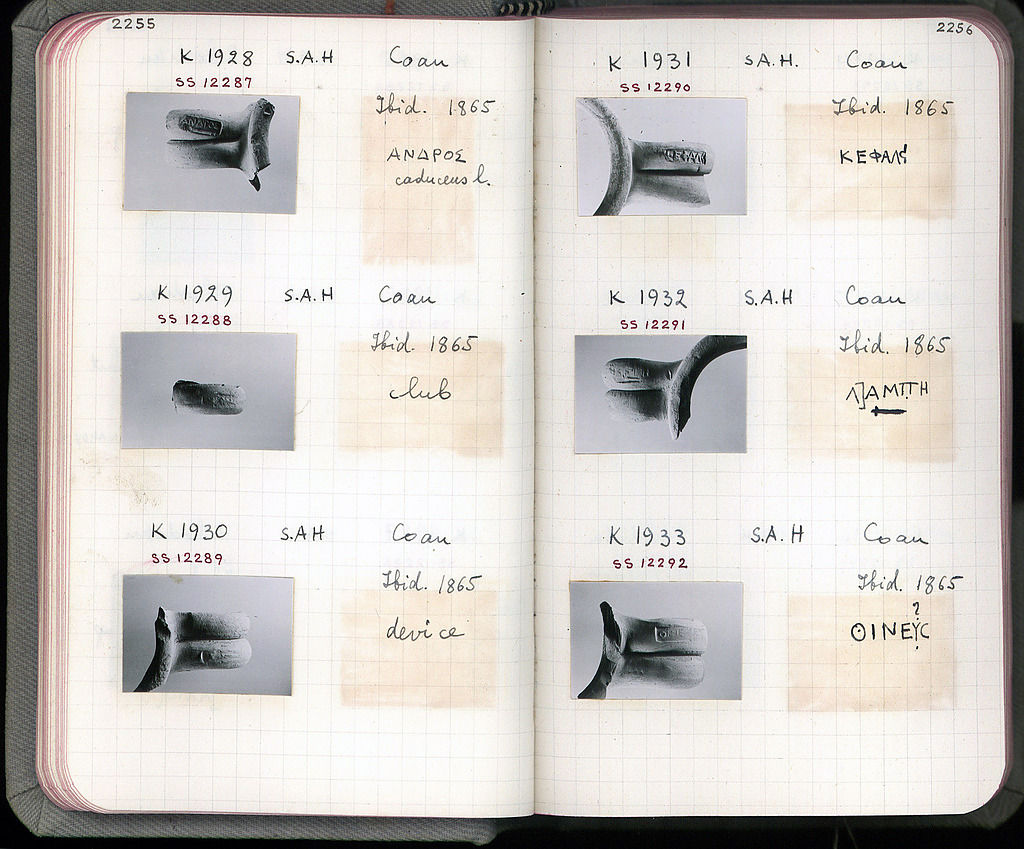 2255
K 1928 S.A.H Coan
SS 12287
Ibid. 1865
ΑΝΔΡΟΣ
caduceus l.
K 1929 S.A.H Coan
SS 12288
Ibid. 1865
club
K 1930 S.A.H Coan
SS 12289
Ibid. 1865
device
2256
K 1931 S.A.H. Coan
SS 12290
Ibid. 1865
K 1932 S.A.H Coan
SS 12291
Ibid. 1865
K 1933 S.A.H Coan
SS 12292
Ibid. 1865
?
ΟΙΝΕΥC